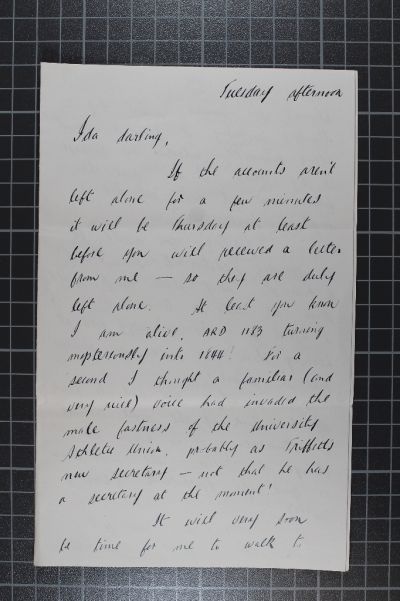 Tuesday afternoon
Ida darling,
If the accounts aren't
left alone for a few minutes
it will be Thursday at least
before you will received a letter
from me — so they are duly
left alone. At least you know
I am alive, ARD 1183 turning
mysteriously into 1844! For a
second I thought a familiar (and
very nice) voice had invaded the
male fastness of the University
Athletic Union, probably as
new secretary — not that he has
a secretary at the moment!
It will very soon
be time for me to walk to